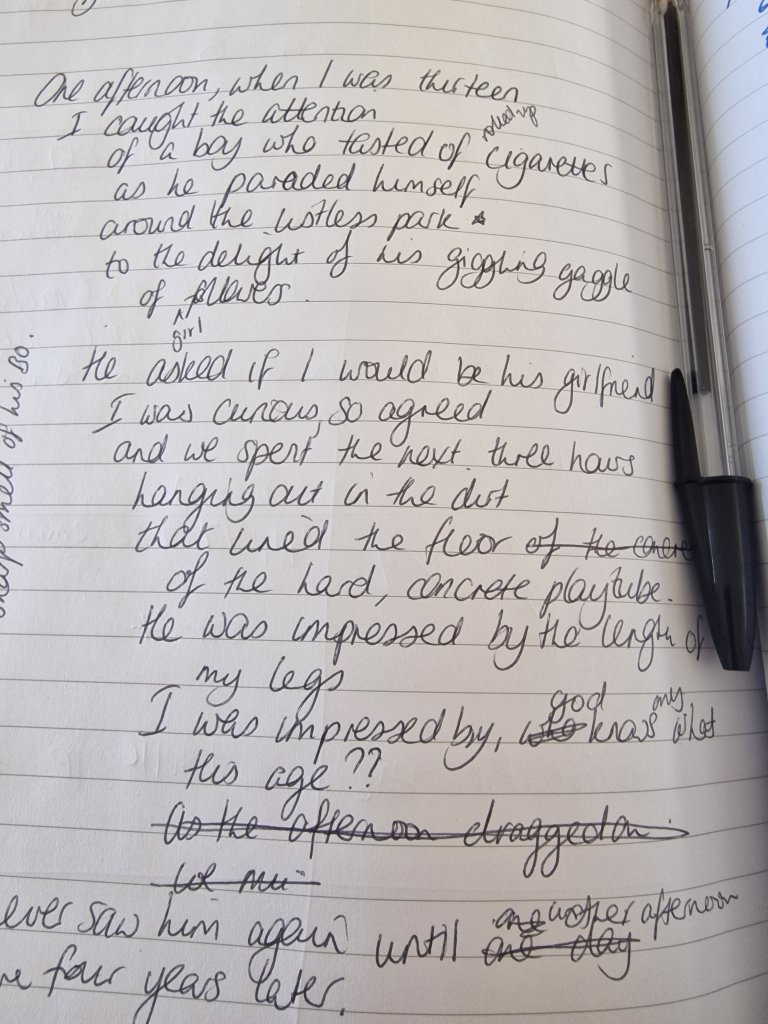 One afternoon, when I was thirteen
I caught the attention
rolled up
of a boy who tasted of cigarettes
as he paraded himself
around the listless park
to the delight of his giggling gaggle
of followers.
girl
He asked if I would be his girlfriend
I was curious, so agreed
and we spent the next three hours
hanging out in the dirt
that lined the floor of the concre
of the hard, concrete playtube.
He was impressed by the length of
my legs
god my
I was impressed by, who knows what
his age??
As the afternoon dragged on
we
ever saw him again until one another afternoon
one day
four years later.
smell of his BO.